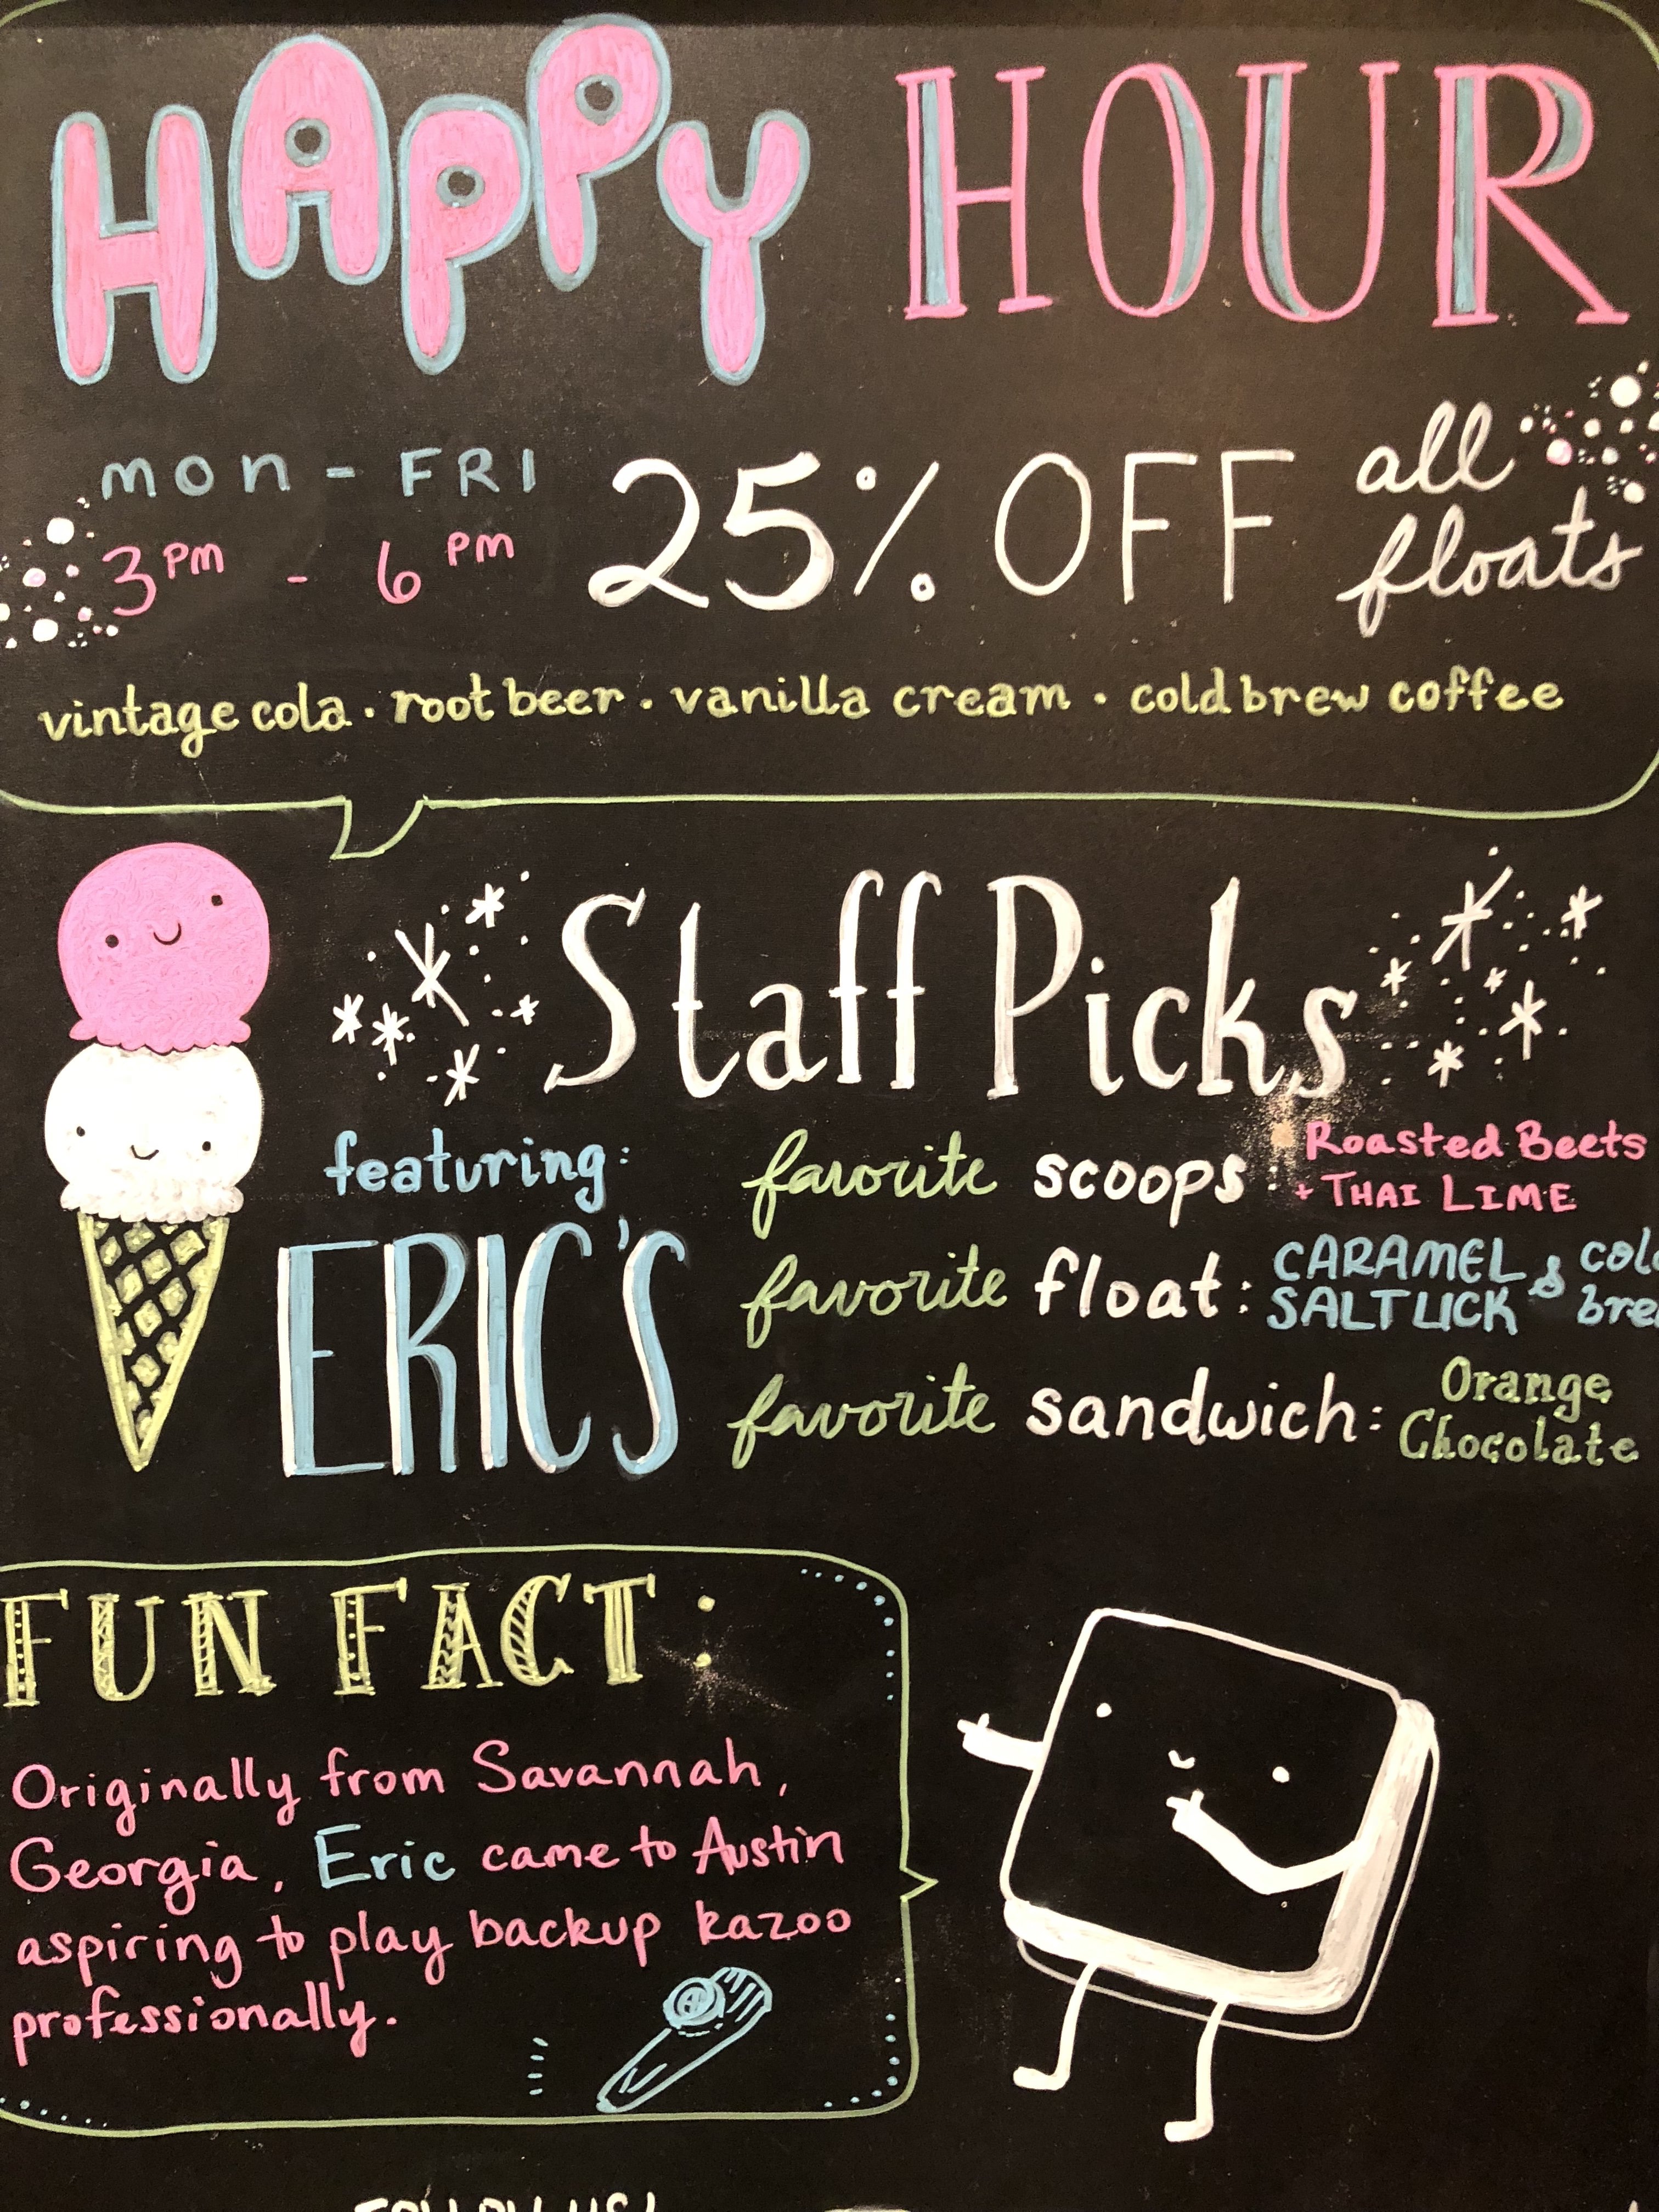 HAPPY HOUR
MON - FRI
3PM - 6PM
25% OFF
all
floats
vintage cola · root beer · vanilla cream · cold brew coffee
Staff Picks
featuring:
ERIC'S
favorite scoops: Roasted Beets
+ THAI LIME
favorite float: CARAMEL
SALT LICK &
favorite sandwich: Orange
Chocolate
FUN FACT:
Originally from Savannah,
Georgia, Eric came to Austin
aspiring to play backup kazoo
professionally.
FOLLOW US!